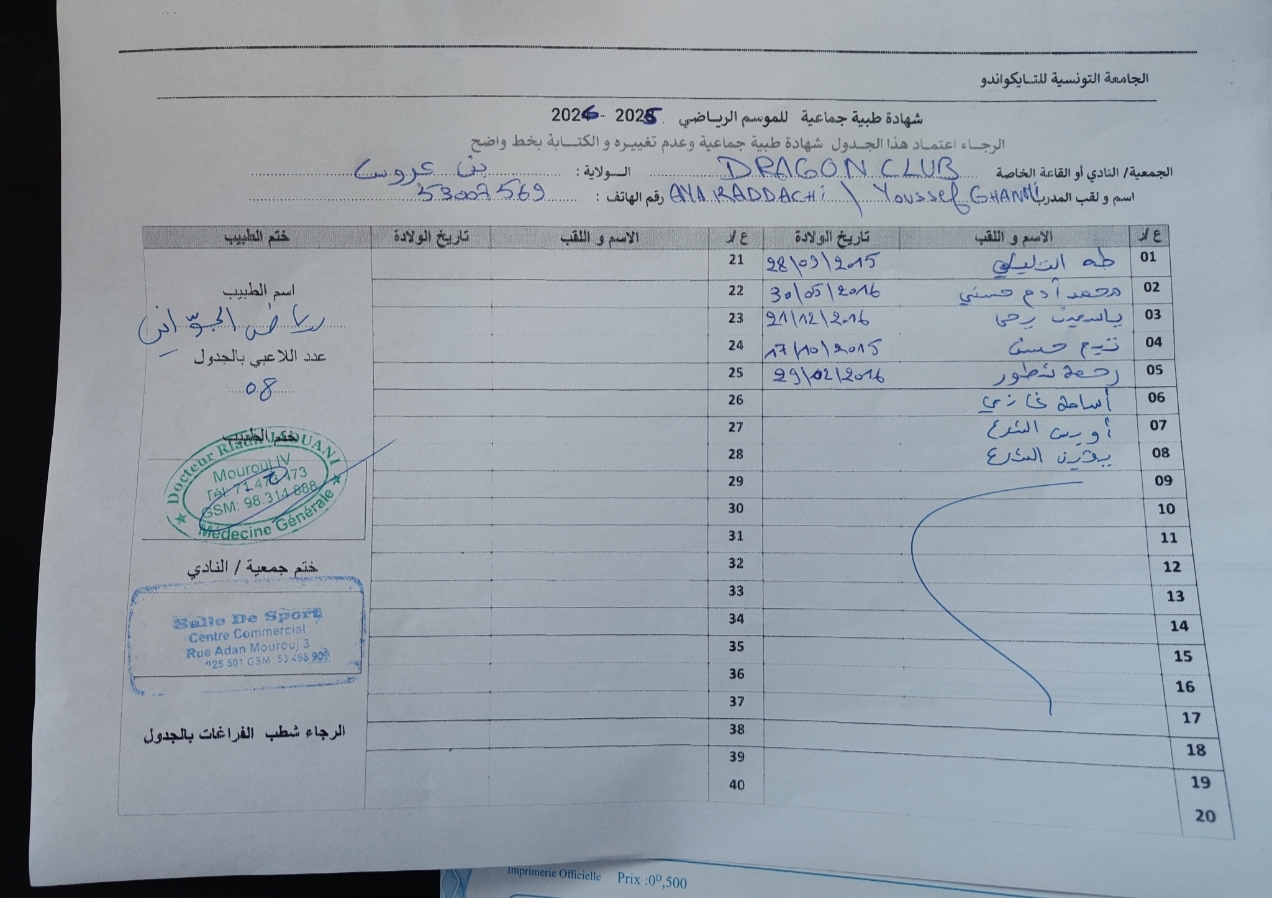 الجامعة التونسية للتايكواندو
شهادة طبية جماعية للموسم الرياضي 2025 - 2026
الرجاء اعتماد هذا الجدول شهادة طبية جماعية وعدم تغييره و الكتابة بخط واضح
الجمعية/ النادي أو القاعة الخاصة DRAGON CLUB الولاية : بن عروس
اسم و لقب المدرب AYA KADDACHi / Youssef GHANMI رقم الهاتف : 53007569
ع/ر الاسم و اللقب تاريخ الولادة ع/ر الاسم و اللقب تاريخ الولادة ختم الطبيب
01 طه التليلي 28/09/2015 21
02 محمد أدم حسني 30/05/2016 22
03 ياسمين 21/12/2016 23
04 تيم حسن 17/10/2015 24
05 رحمة شطور 29/02/2016 25
06 أسامة غازي 26
07 أويس الشارع 27
08 الشارع 28
09 29
10 30
11 31
12 32
13 33
14 34
15 35
16 36
17 37
18 38
19 39
20 40
اسم الطبيب
رياض الجوّاني
عدد اللاعبي بالجدول
08
ختم الطبيب
Docteur Riadh JAOUANI
Mourouj IV
Tél: 71 473 473
GSM: 98 314 888
Médecine Générale
ختم جمعية / النادي
Salle De Sport
Centre Commercial
Rue Adan Mourouj 3
GSM: 53 495 909
الرجاء شطب الفراغات بالجدول
Imprimerie Officielle Prix :0ᴰ,500